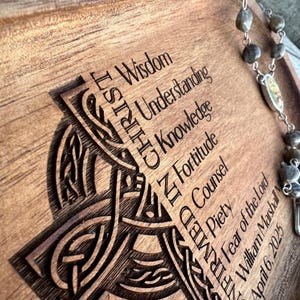 CHRIST
Wisdom
Understanding
Knowledge
Fortitude
Counsel
Piety
Fear of the Lord
William Marshall
April 6, 2025